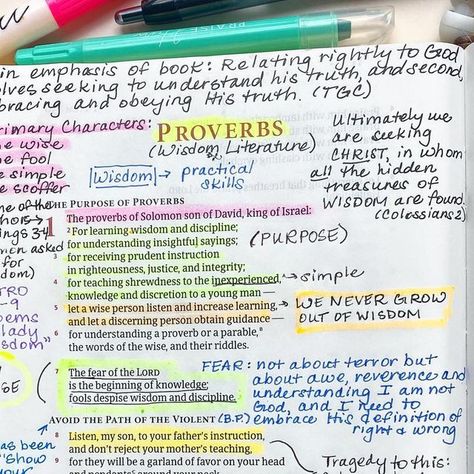 PRAISE
in emphasis of book: Relating rightly to God
olves seeking to understand his truth, and second,
bracing and obeying His truth. (TGC)
rimary Characters:
he wise
he fool
e simple
e scoffer
PROVERBS
(Wisdom Literature)
Wisdom → practical
skills
Ultimately we
are seeking
CHRIST, in whom
all the hidden
treasures of
WISDOM are found.
(Colossians 2)
THE PURPOSE OF PROVERBS
1 The proverbs of Solomon son of David, king of Israel:
2 For learning wisdom and discipline;
for understanding insightful sayings;
(PURPOSE)
3 for receiving prudent instruction
in righteousness, justice, and integrity;
4 for teaching shrewdness to the inexperienced, → simple
knowledge and discretion to a young man —
5 let a wise person listen and increase learning,
and let a discerning person obtain guidance —
→ WE NEVER GROW
OUT OF WISDOM
6 for understanding a proverb or a parable,
the words of the wise, and their riddles.
ne of the
ings 3:4
men asked
for
dom)
TRO
-9
oems
lady
sdom"
7 The fear of the LORD
is the beginning of knowledge;
fools despise wisdom and discipline.
FEAR: not about terror but
about awe, reverence and
understanding I am not
God, and I need to
embrace His definition of
right & wrong
AVOID THE PATH OF THE VIOLENT (B.P.)
8 Listen, my son, to your father's instruction,
and don't reject your mother's teaching,
9 for they will be a garland of favor on your head
and pendants around your neck.
as been
"Show
your
Tragedy to this: